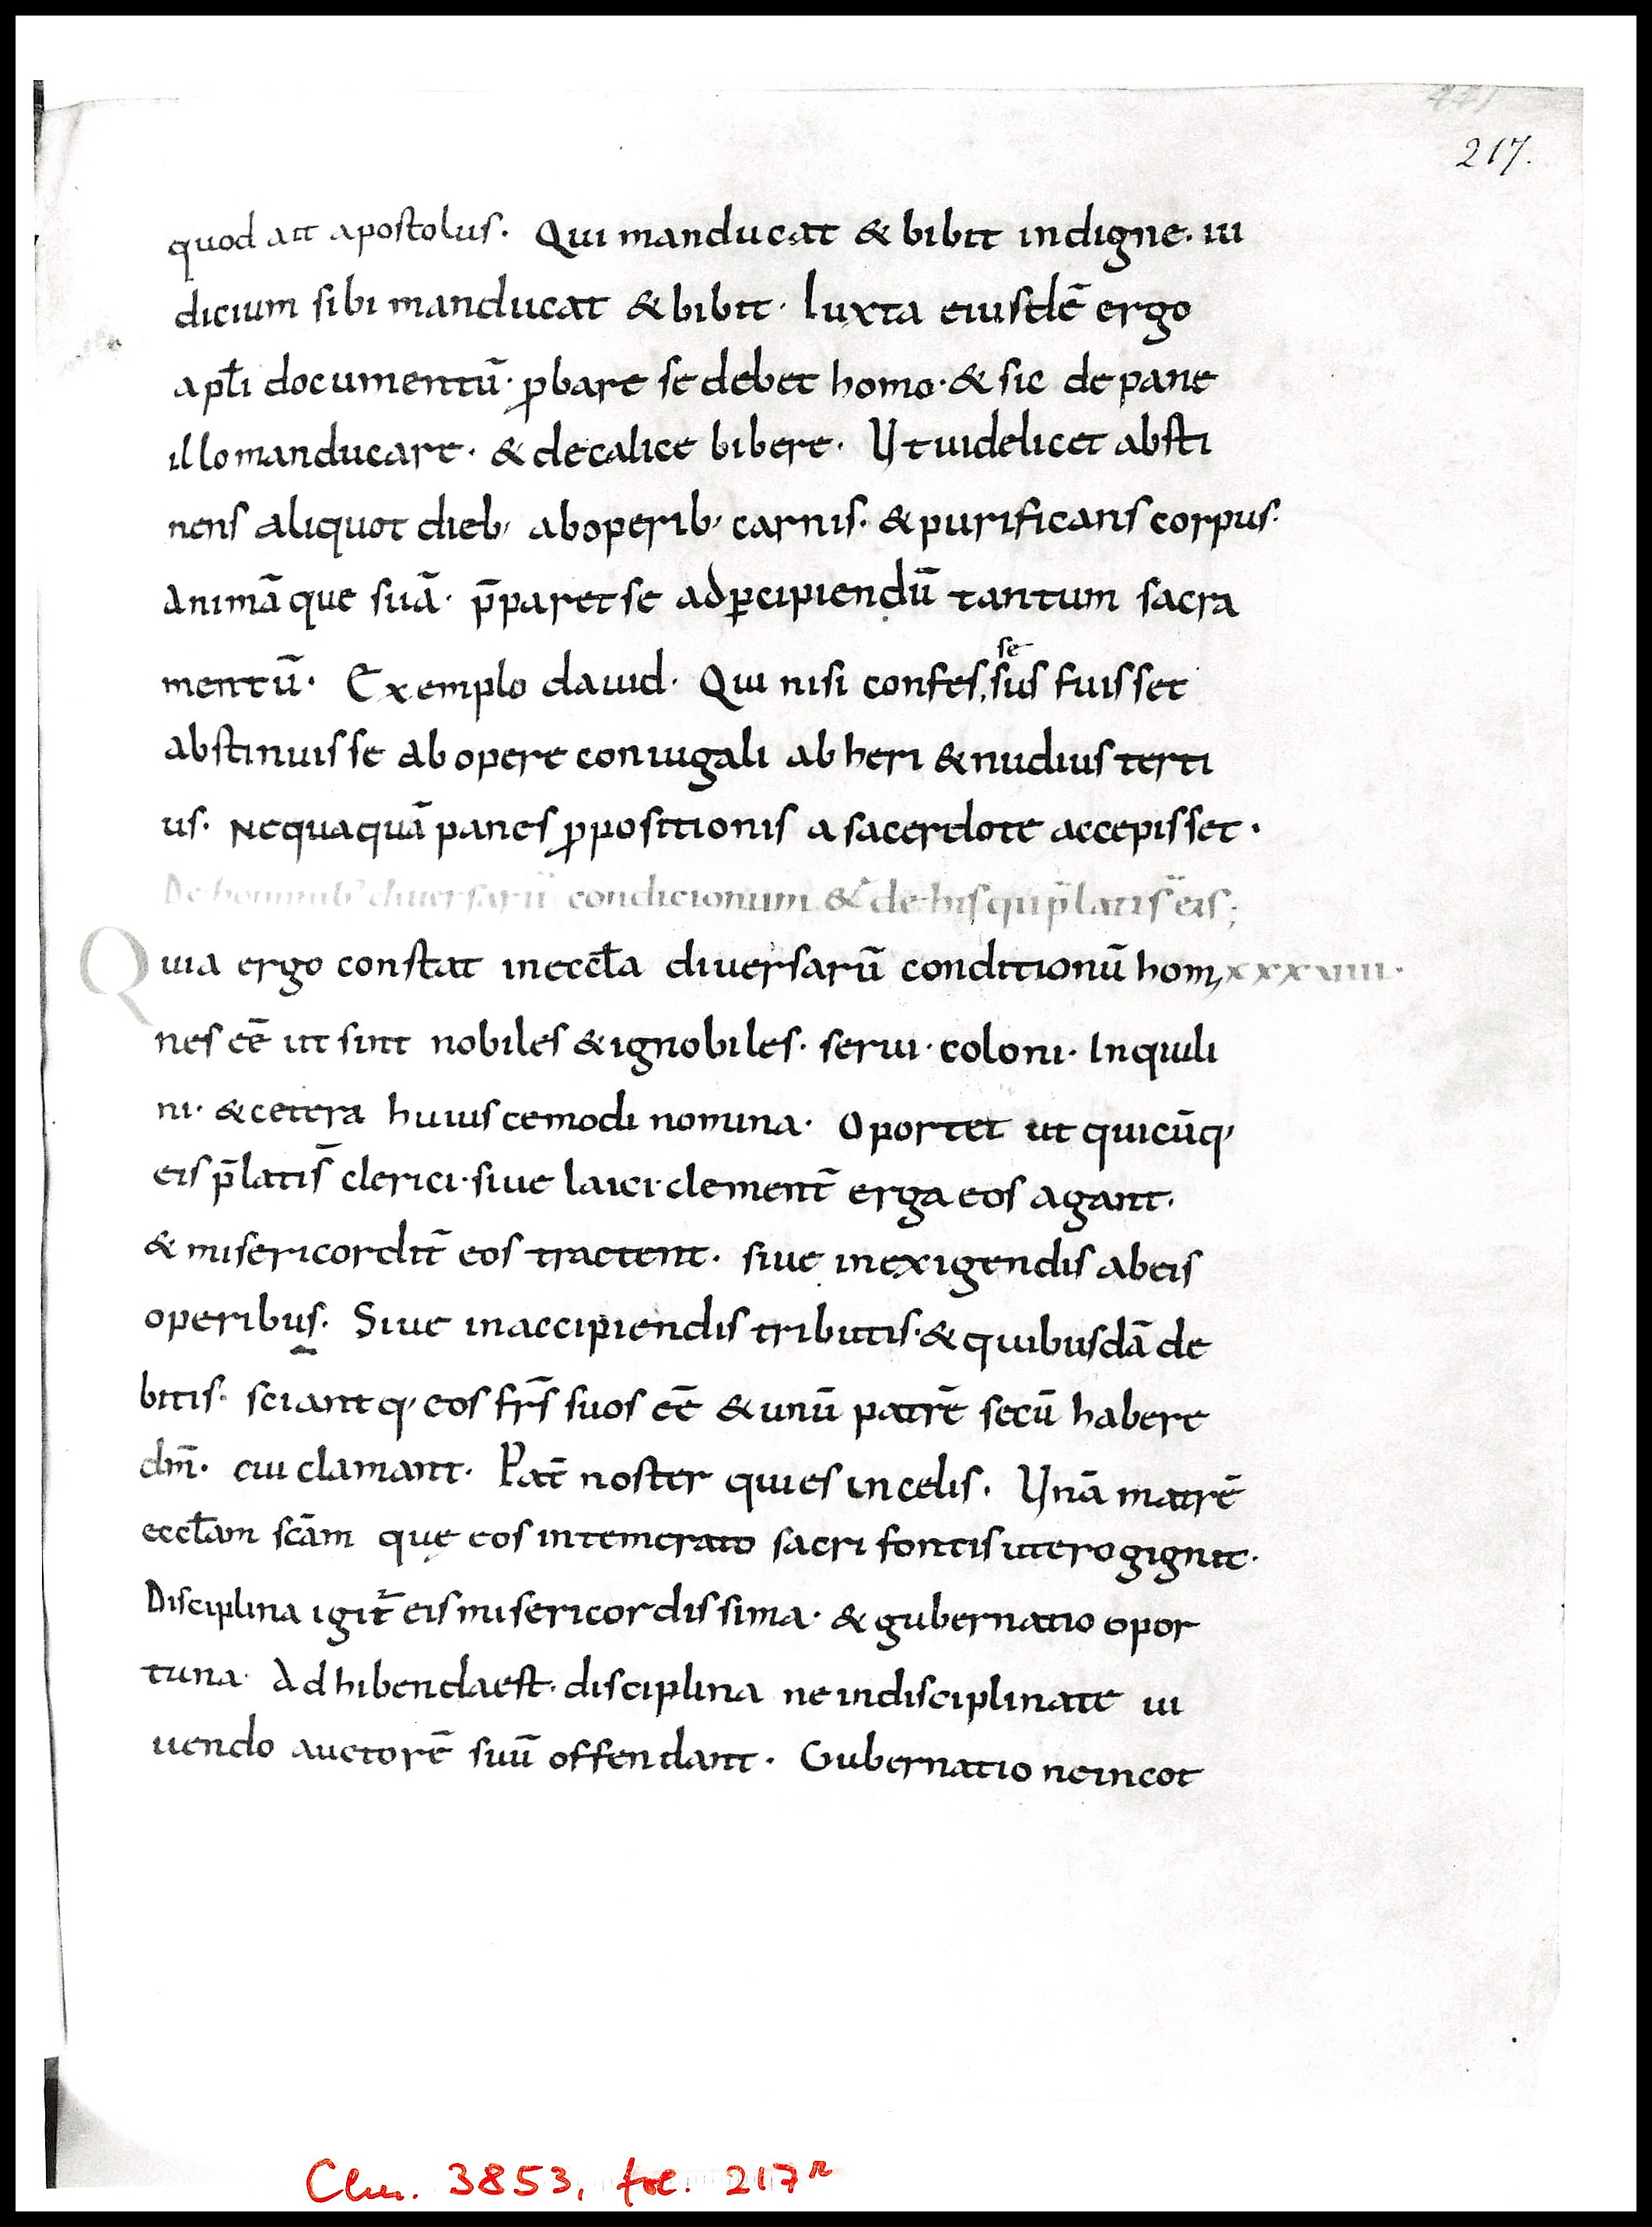 217.
quod ait apostolus. Qui manducat & bibit indigne. iu
dicium sibi manducat & bibit. Iuxta eiusdē ergo
apłi documentū. ꝓbare se debet homo. & sic de pane
illo manducare. & de calice bibere. Ut uidelicet absti
nens aliquot dieb; ab operib; carnis. & purificans corpus.
animāque suā. p̄paret se ad ꝑcipiendū tantum sacra
mentū. Exemplo dauid. Qui nisi confessus se fuisset
abstinuisse ab opere coniugali ab heri & nudius terti
us. Nequaquā panes ꝓpositionis a sacerdote accepisset.
De hominib; diuersarū condicionum & de his qui p̄lati s̄ eis;
Quia ergo constat in eccła diuersarū conditionū homi xxxviiii.
nes eē ut sint nobiles & ignobiles. serui. coloni. Inquili
ni. & cetera huiuscemodi nomina. Oportet ut quicūq;
eis p̄lati s̄ clerici. siue laici. clement̄ erga eos agant.
& misericordit̄ eos tractent. siue in exigendis ab eis
operibus. Siue in accipiendis tributis. & quibusdā de
bitis. sciantq; eos fr̄s suos eē & unū patrē secū habere
dm̄. cui clamant. Pat̄ noster qui es in celis. Unā matrē
eccłam scām quę eos intemerato sacri fontis utero gignit.
Disciplina igit̄ eis misericordissima. & gubernatio opor
tuna. Adhibenda est. disciplina ne indisciplinate ui
uendo auctorē suū offendant. Gubernatio ne in cot
Clm. 3853, fol. 217r